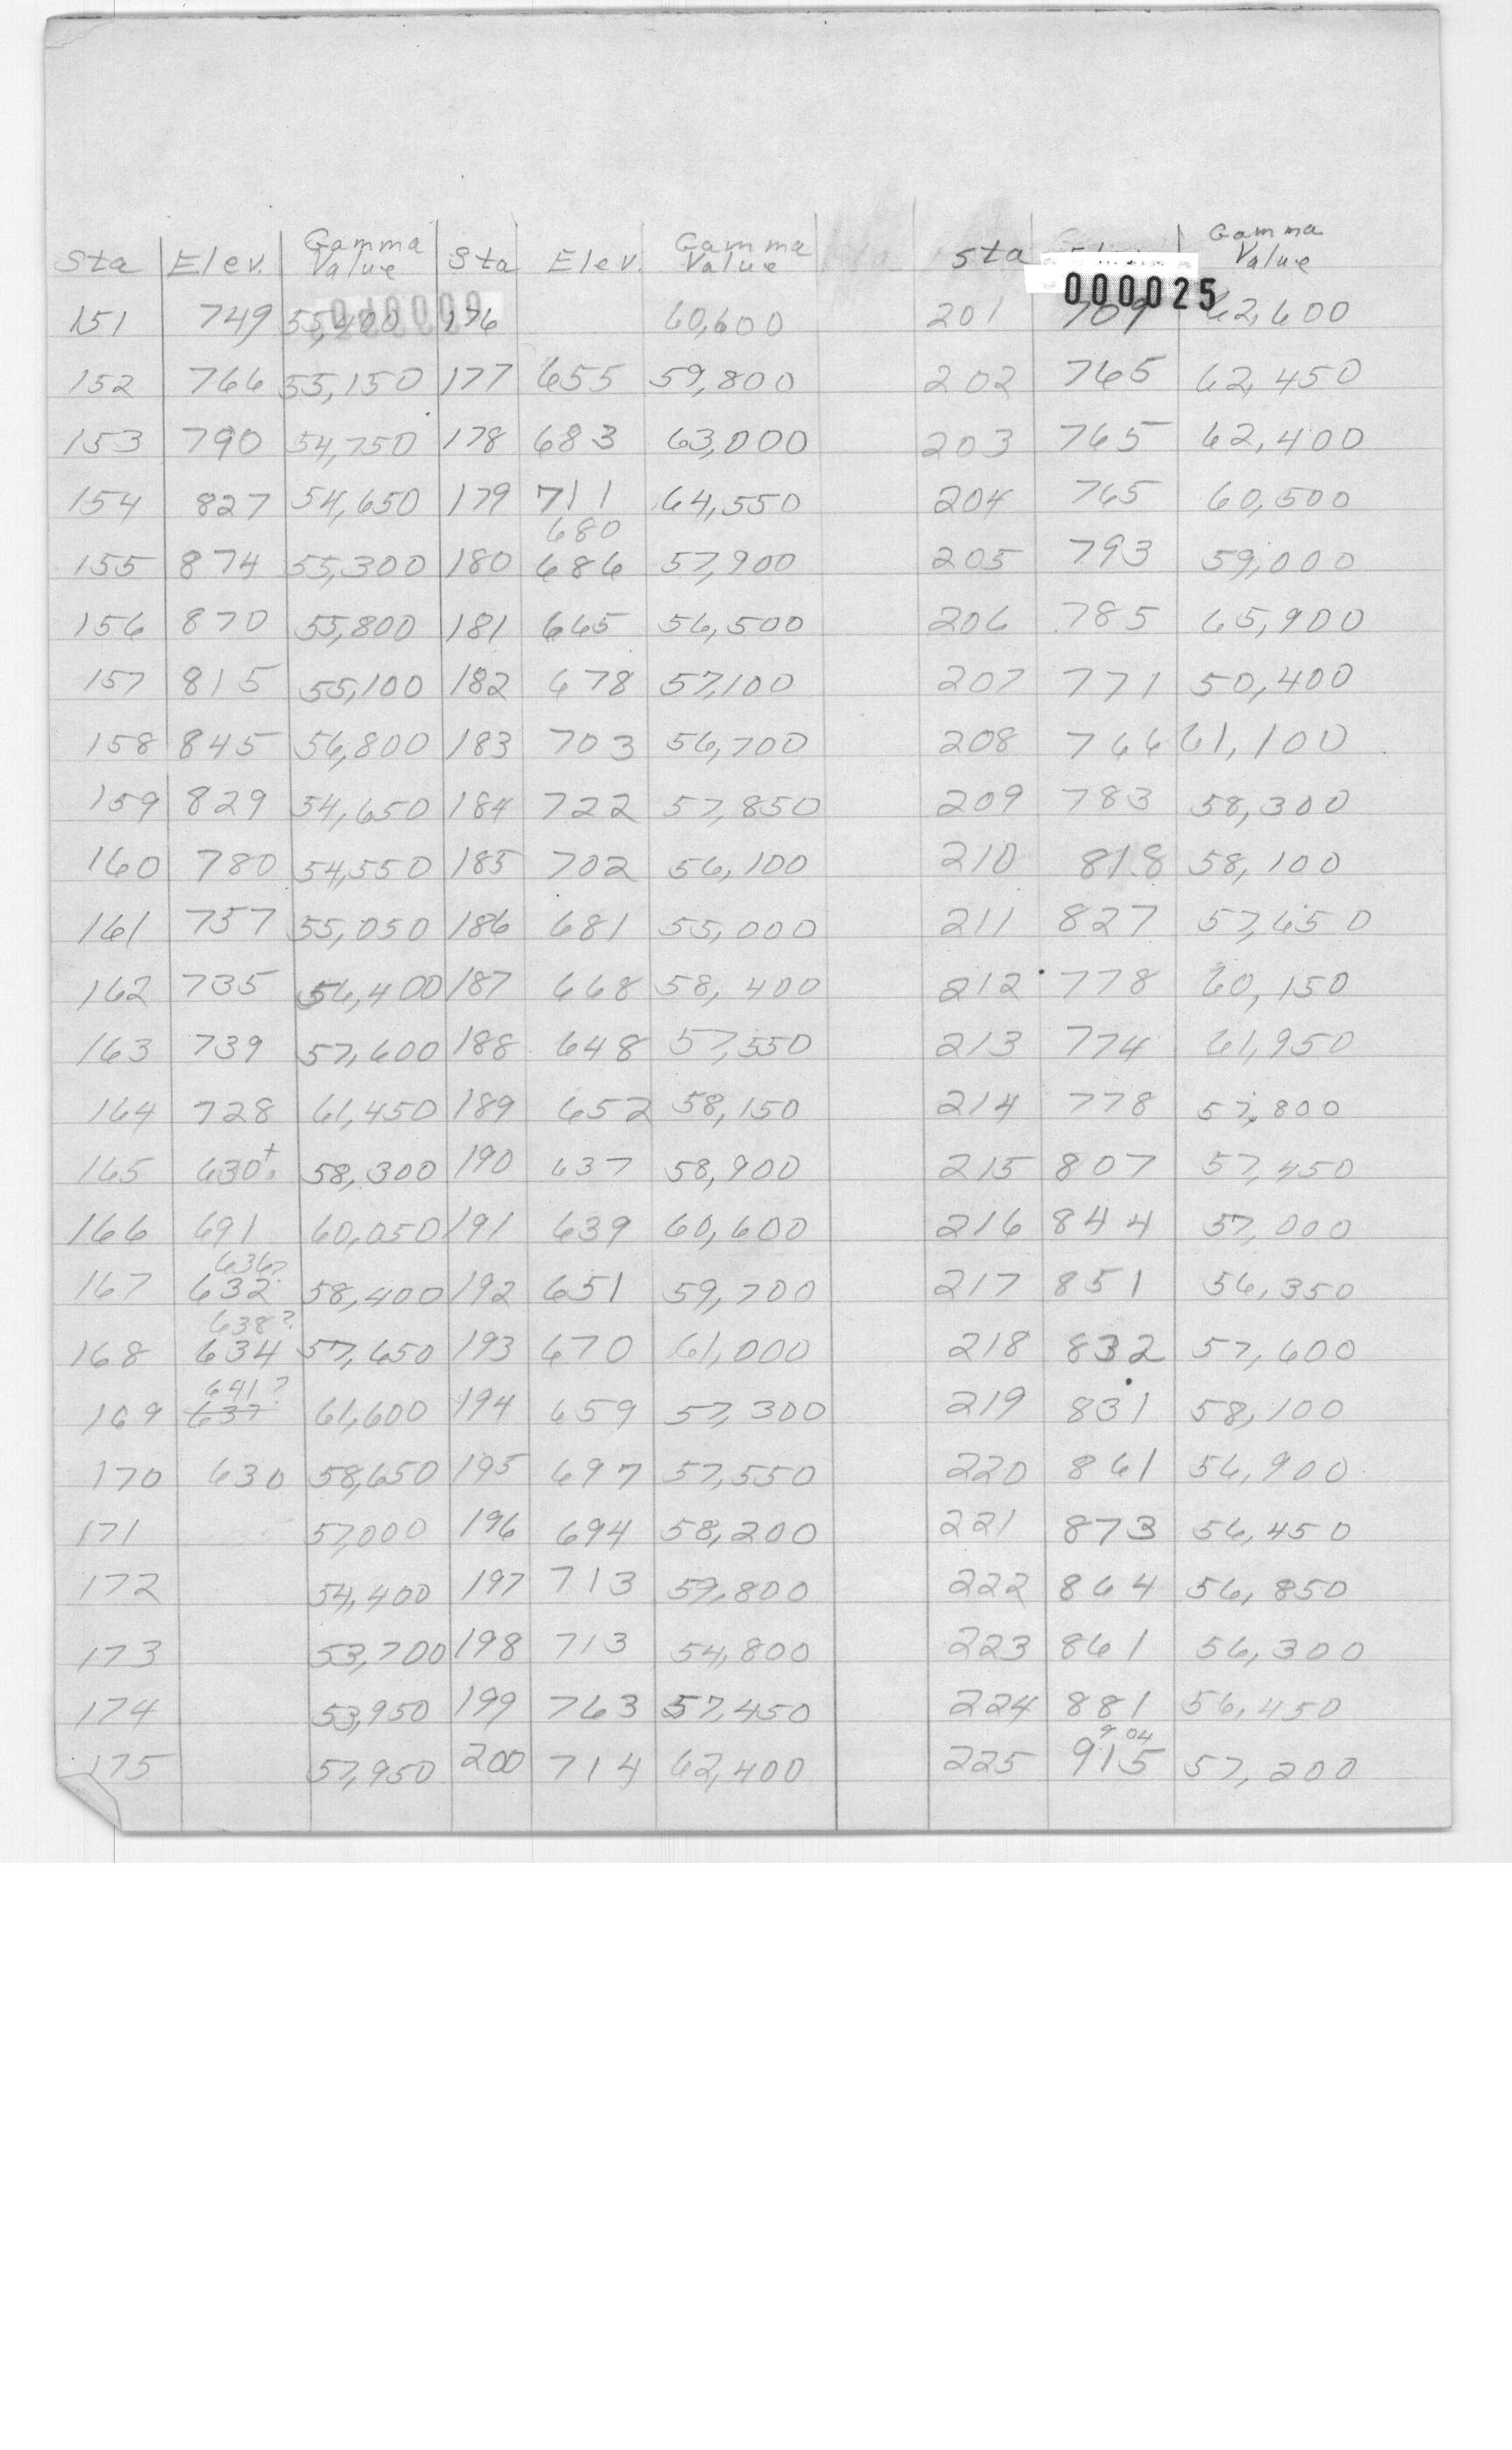 Sta Elev. Gamma Value Sta Elev. Gamma Value Sta Gamma Value
000025
151 749 176 60,600 201 709 62,600
152 766 55,150 177 655 59,800 202 765 62,450
153 790 54,750 178 683 63,000 203 765 62,400
154 827 54,650 179 711 64,550 204 765 60,500
680
155 874 55,300 180 686 57,900 205 793 59,000
156 870 55,800 181 665 56,500 206 785 65,900
157 815 55,100 182 678 57,100 207 771 50,400
158 845 56,800 183 703 56,700 208 766 61,100
159 829 54,650 184 722 57,850 209 783 58,300
160 780 54,550 185 702 56,100 210 818 58,100
161 757 55,050 186 681 55,000 211 827 57,650
162 735 56,400 187 668 58,400 212 778 60,150
163 739 57,600 188 648 57,550 213 774 61,950
164 728 61,450 189 652 58,150 214 778 57,800
165 630± 58,300 190 637 58,900 215 807 57,450
166 691 60,050 191 639 60,600 216 844 57,000
636?
167 632 58,400 192 651 59,700 217 851 56,350
638?
168 634 57,650 193 670 61,000 218 832 57,600
641?
169 637 61,600 194 659 57,300 219 831 58,100
170 630 58,650 195 697 57,550 220 861 56,900
171 57,000 196 694 58,200 221 873 56,450
172 54,400 197 713 59,800 222 864 56,850
173 53,700 198 713 54,800 223 861 56,300
174 53,950 199 763 57,450 224 881 56,450
904
175 57,950 200 714 62,400 225 915 57,200